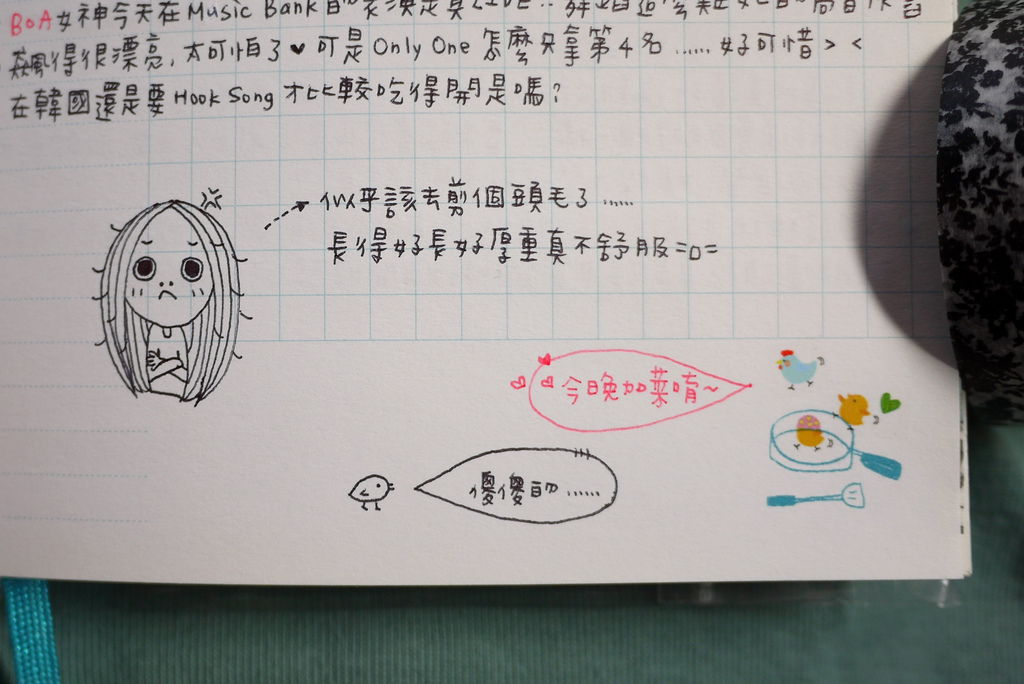 BoA女神今天在Music Bank的表演是真Live..舞蹈這麼
飆得很漂亮,太可怕了♥可是Only One 怎麼只拿第4名......好可惜> <
在韓國還是要Hook Song才比較吃得開是嗎?
似乎該去剪個頭毛了......
長得好長好厚重真不舒服=口=
今晚加菜唷~
傻傻的......